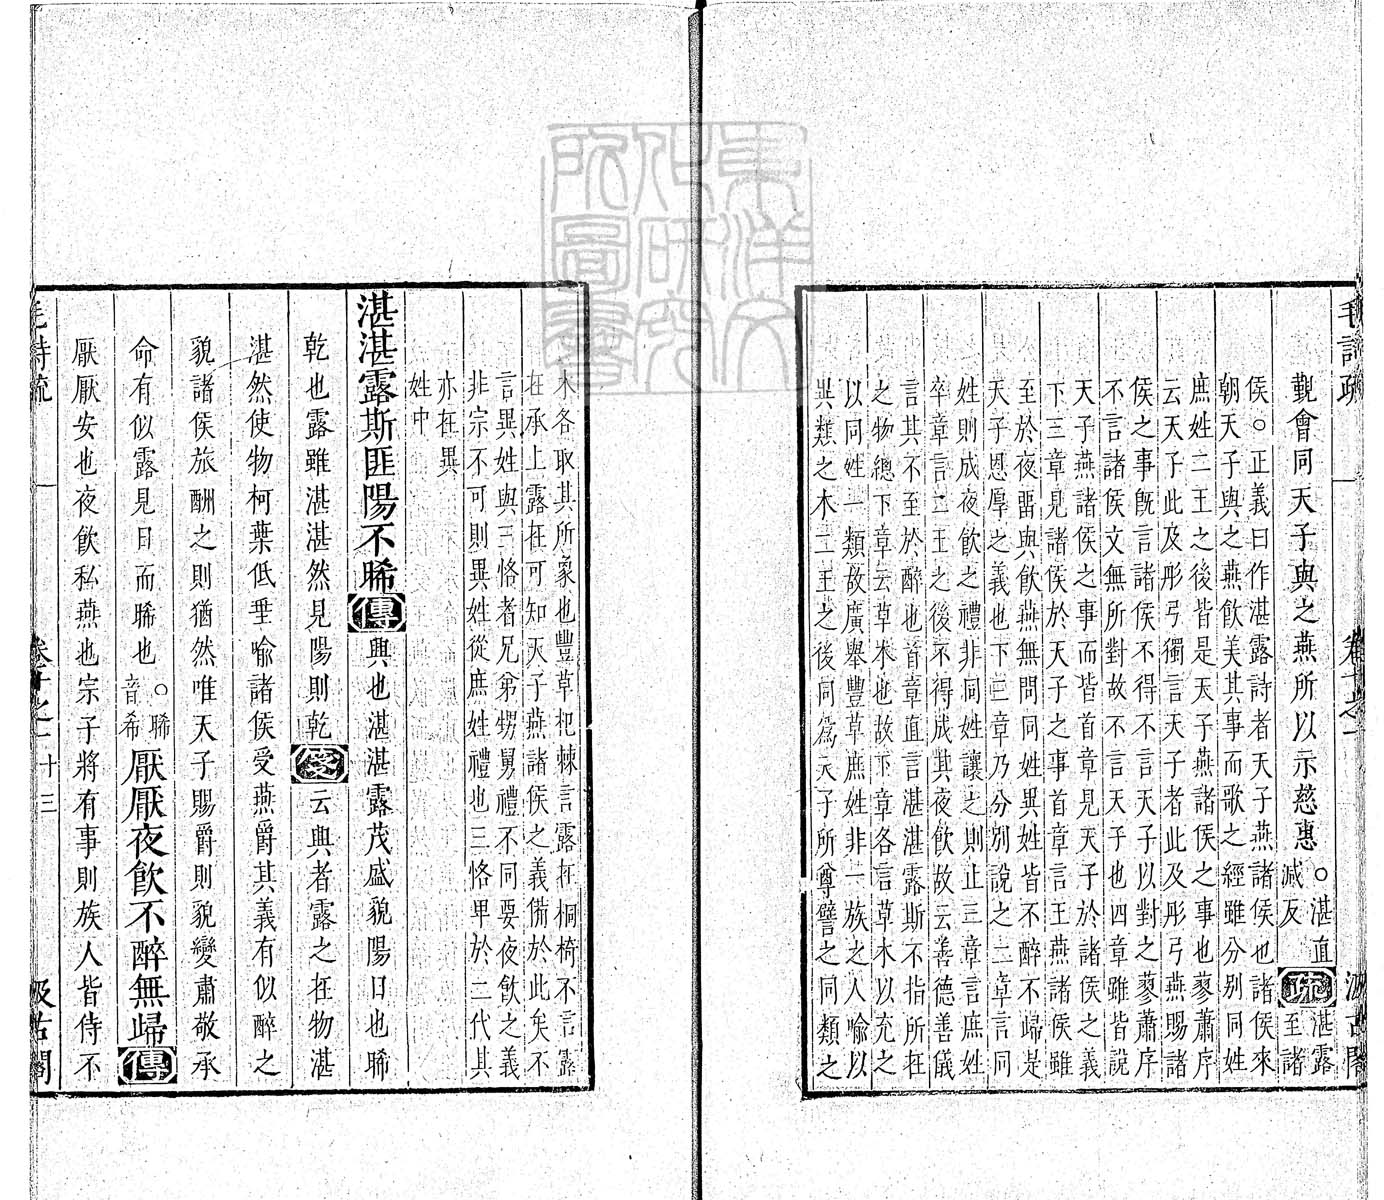 毛詩疏
卷十之一
汲古閣
覲會同天子與之燕所以示慈惠○湛直減反疏湛露至諸
侯○正義曰作湛露詩者天子燕諸侯也諸侯來
朝天子與之燕飲美其事而歌之經雖分別同姓
庶姓二王之後皆是天子燕諸侯之事也蓼蕭序
云天子此及彤弓獨言天子者此及彤弓燕賜諸
侯之事旣言諸侯不得不言天子以對之蓼蕭序
不言諸侯文無所對故不言天子也四章雖皆說
天子燕諸侯之事而皆首章見天子於諸侯之義
下三章見諸侯於天子之事首章言王燕諸侯雖
至於夜畱與飲燕無問同姓異姓皆不醉不歸是
天子恩厚之義也下三章乃分別說之二章言同
姓則成夜飲之禮非同姓讓之則止三章言庶姓
卒章言二王之後不得成其夜飲故云善德善儀
言其不至於醉也首章直言湛湛露斯不指所在
之物總下章云草木也故下章各言草木以充之
以同姓一類故廣舉豐草庶姓非一族之人喻以
異類之木二王之後同爲天子所尊譬之同類之
木各取其所象也豐草杞棘言露在桐椅不言露
在承上露在可知天子燕諸侯之義備於此矣不
言異姓與三恪者兄弟甥舅禮不同要夜飲之義
非宗不可則異姓從庶姓禮也三恪卑於二代其
亦在異
姓中
湛湛露斯匪陽不晞傳興也湛湛露茂盛貌陽日也晞
乾也露雖湛湛然見陽則乾箋云興者露之在物湛
湛然使物柯葉低垂喻諸侯受燕爵其義有似醉之
貌諸侯旅酬之則猶然唯天子賜爵則貌變肅敬承
命有似露見日而晞也○晞音希厭厭夜飲不醉無歸傳
厭厭安也夜飲私燕也宗子將有事則族人皆侍不
毛詩疏
卷十之一
十三
汲古閣
東洋文化研究所圖書